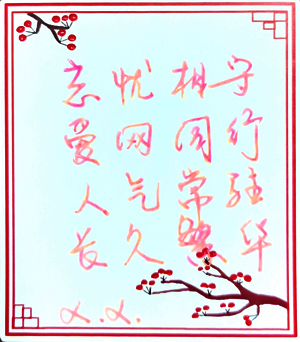 忘忧相守
爱网同行
人气常驻
长久繁华